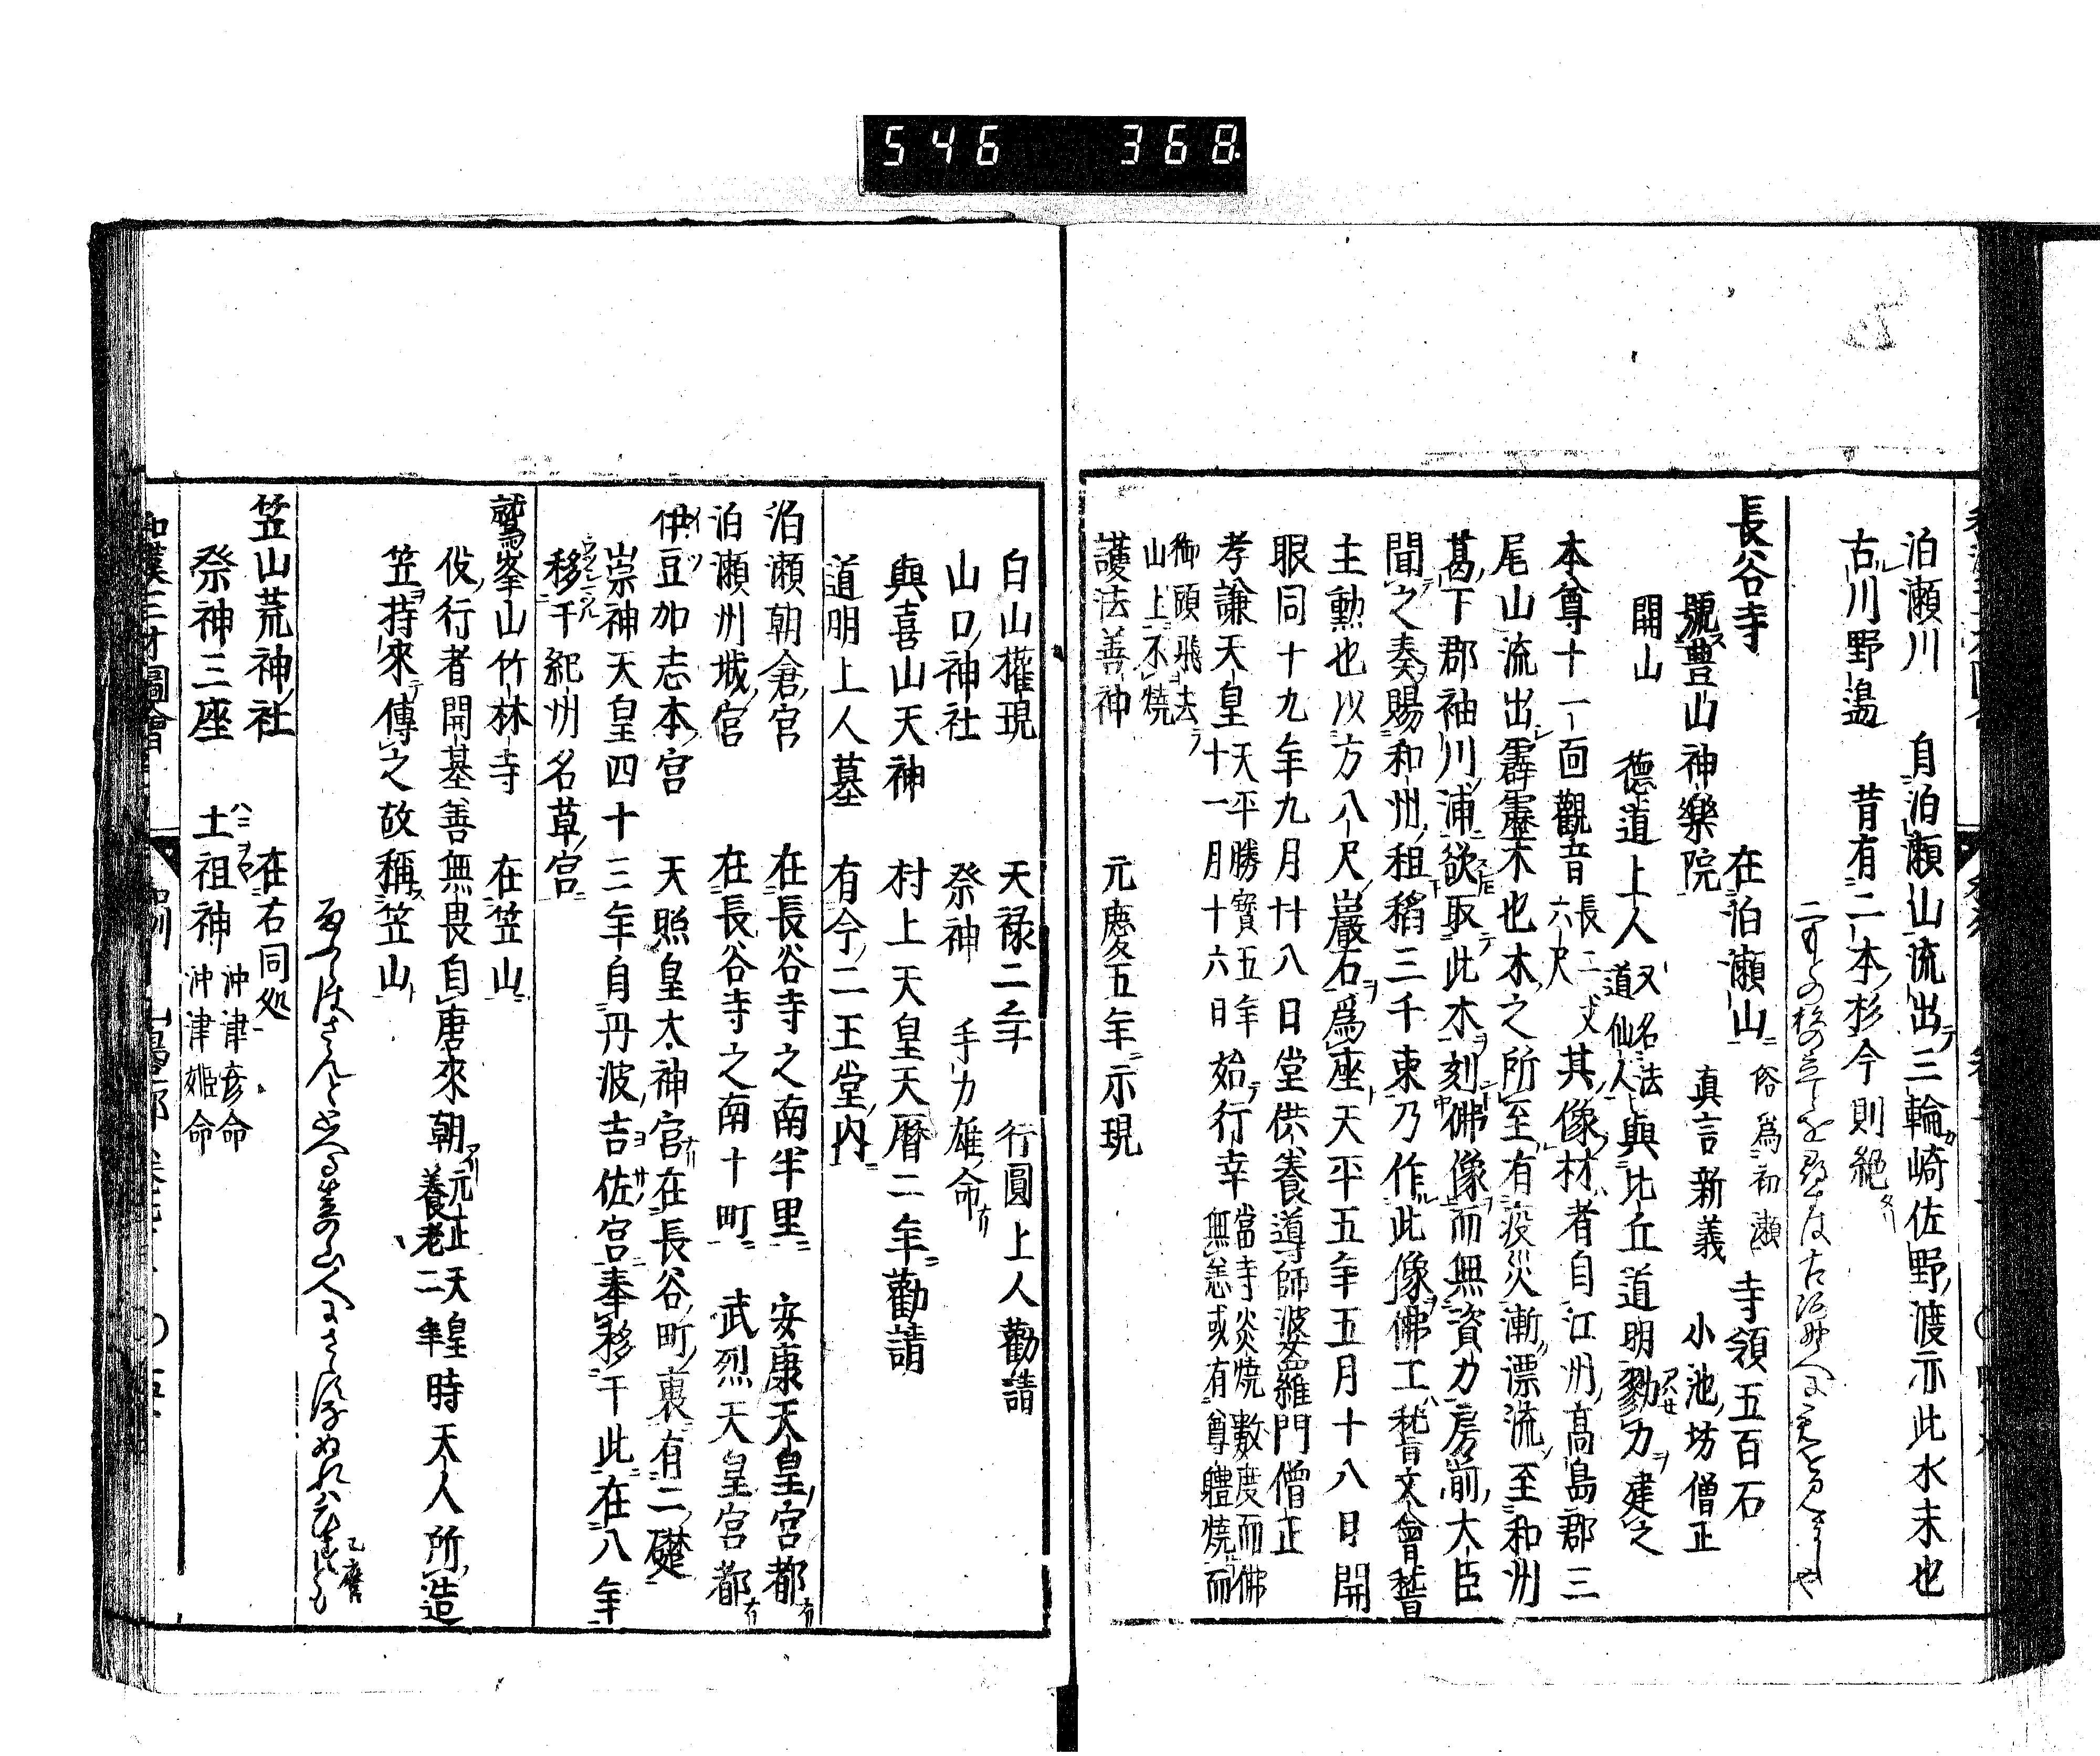 546 368.
泊瀬川 自泊瀬山流出三輪崎佐野渡亦此水末也
古川野邉 昔有二本杉今則絶
長谷寺 在泊瀬山 俗爲初瀬 寺領五百石
號豊山神樂院 真言新義 小池坊僧正
開山 德道上人 又名法道仙人 與比丘道明勠力建之
本尊十一面觀音 長二丈六尺 其像材者自江州高島郡三
尾山流出霹靂木也木之所至有疫災漸漂流至和州
葛下郡袖川浦欲取此木刻佛像而無資力房前大臣
聞之奏賜和州租稻三千束乃作此像佛工稽文會稽
主勳也以方八尺巖石爲座天平五年五月十八日開
眼同十九年九月廿八日堂供養導師婆羅門僧正
孝謙天皇 天平勝寶五年十一月十六日 始行幸 當寺炎焼數度而佛無恙或有尊軆焼而
御頭飛去山上不燒
護法善神 元慶五年示現
白山權現 天禄二年 行圓上人勸請
山口神社 祭神 手力雄命
與喜山天神 村上天皇天暦二年勸請
道明上人墓 有今二王堂内
泊瀬朝倉宮 在長谷寺之南半里 安康天皇宮都
泊瀬列城宮 在長谷寺之南十町 武烈天皇宮都
伊豆加志本宮 天照皇太神宮在長谷町裏有二礎
崇神天皇四十三年自丹波吉佐宮奉移于此在八年
移于紀州名草宮
鷲峯山竹林寺 在笠山
役行者開基善無畏自唐來朝 元正天皇養老二年 時天人所造
笠持來傳之故稱笠山
笠山荒神社 在右同処
祭神三座 土祖神 沖津彦命 沖津姫命